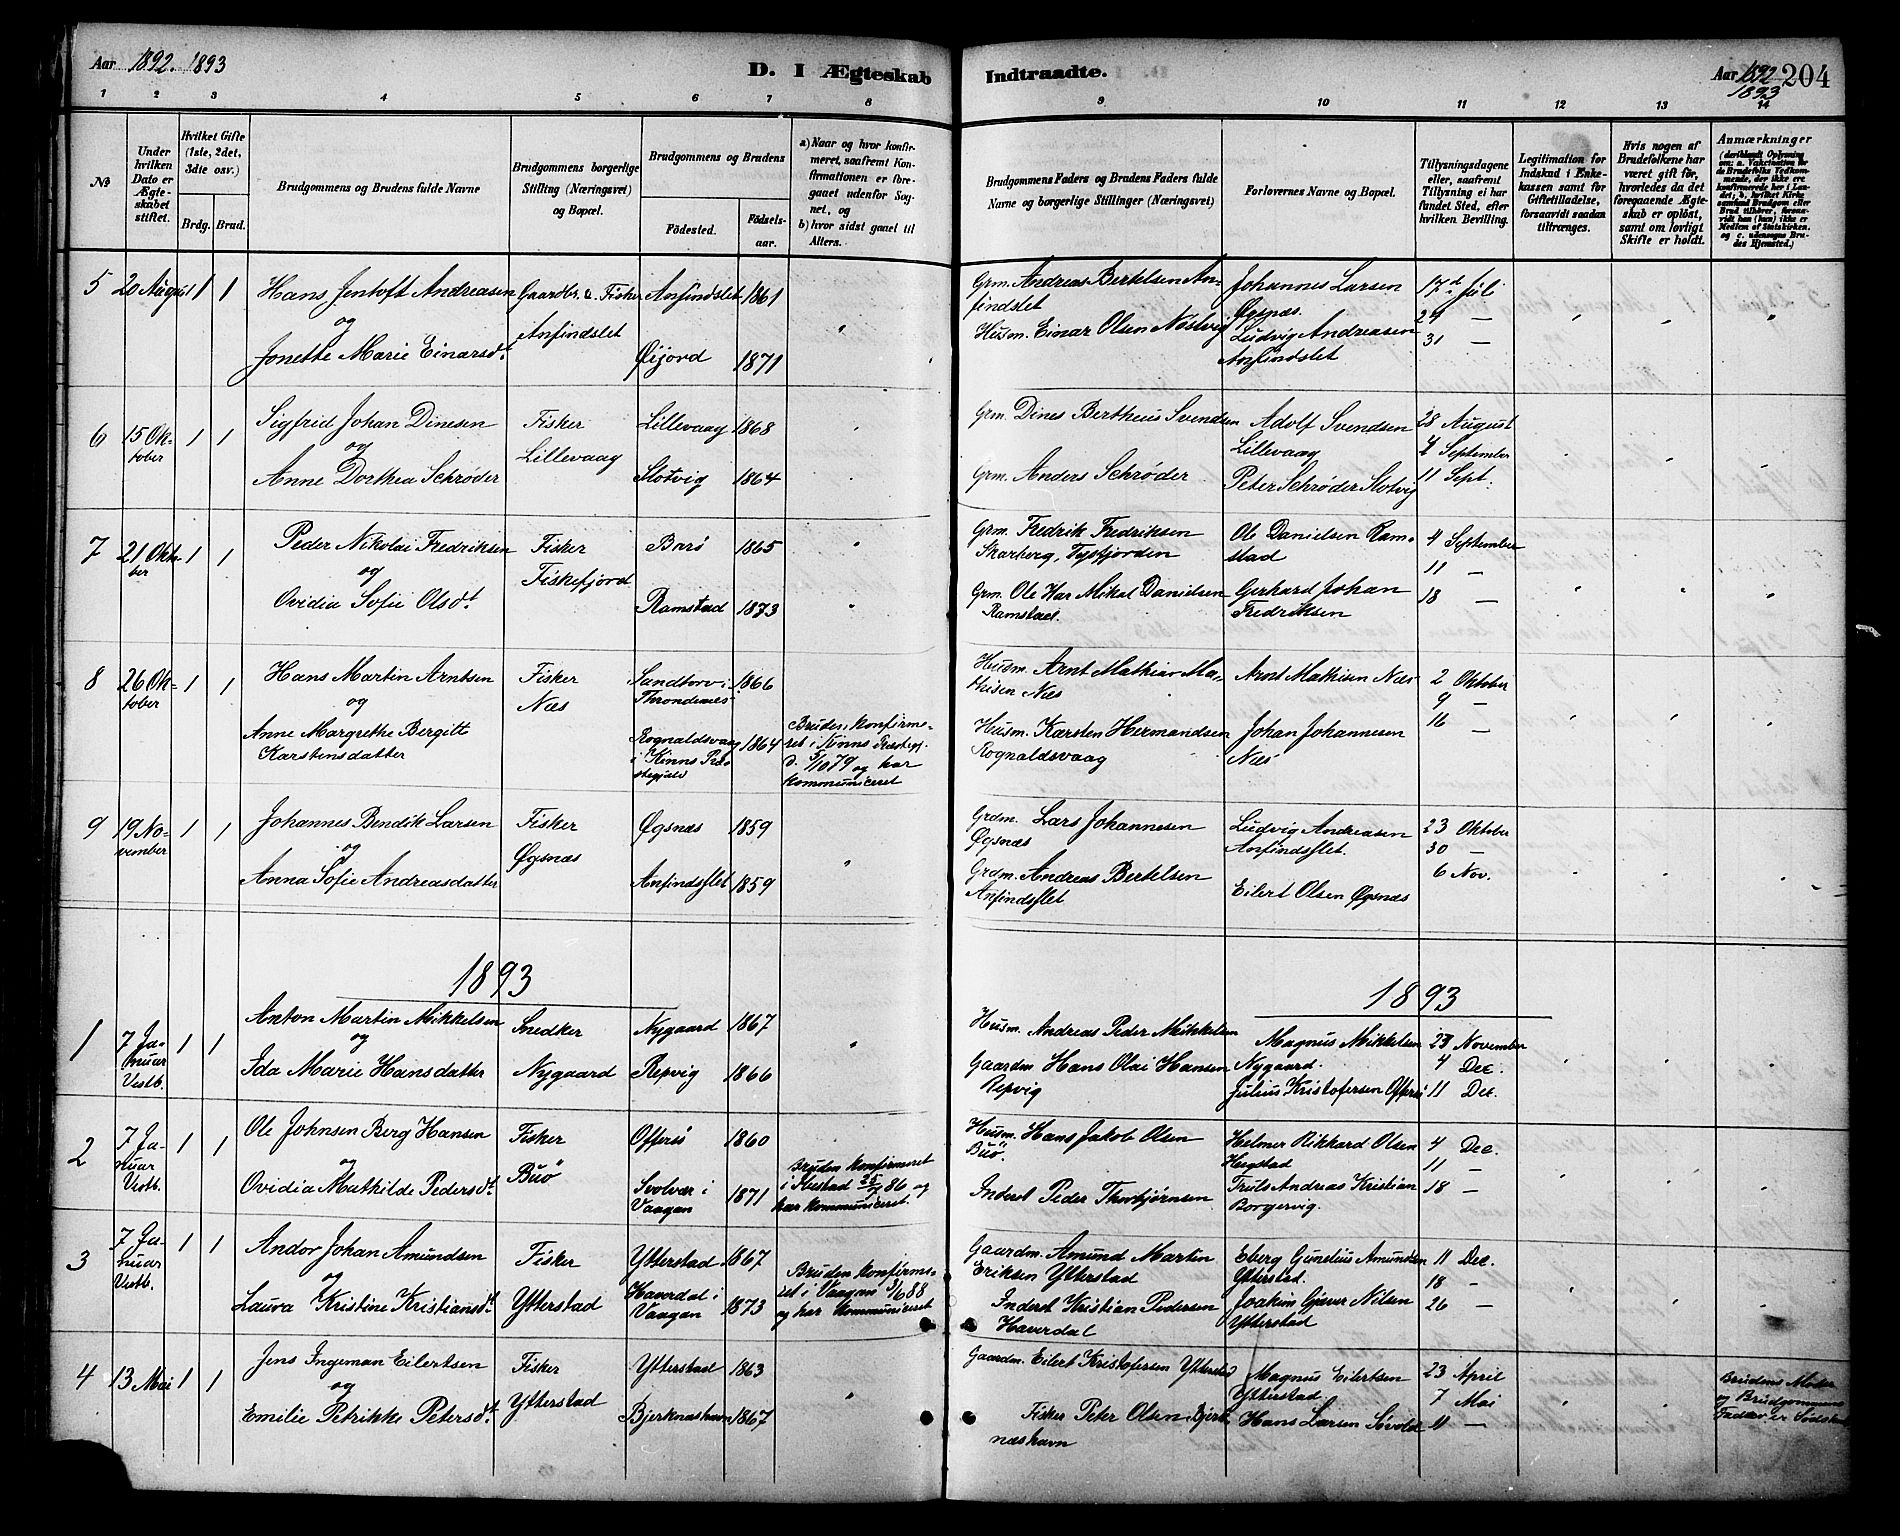 Aar 1892. 1893
D. I Ægteskab
Indtraadte.
Aar 1892 204
1893
1 2 3 4 5 6 7 8
9 10 11 12 13 14
No
Under hvilken Dato er Ægteskabet stiftet.
Hvilket Gifte (1ste, 2det, 3dte osv.)
Brdg. Brud.
Brudgommens og Brudens fulde Navne
Brudgommens borgerlige Stilling (Næringsvei) og Bopæl.
Brudgommens og Brudens
Födested.
Födselsaar.
a) Naar og hvor konfirmeret, saafremt Konfirmationen er foregaaet udenfor Sognet, og
b) hvor sidst gaaet til Alters.
Brudgommens Faders og Brudens Faders fulde Navne og borgerlige Stillinger (Næringsvei)
Forlovernes Navne og Bopæl.
Tillysningsdagene eller, saafremt Tillysning ei har fundet Sted, efter hvilken Bevilling.
Legitimation for Indskud i Enkekassen samt for Giftetilladelse, forsaavidt saadan tiltrænges.
Hvis nogen af Brudefolkene har været gift før, hvorledes da det foregaaende Ægteskab er oplöst, samt om lovligt Skifte er holdt.
Anmærkninger
5 20 August 1 1
Hans Jentoft Andreasen
og
Jonette Marie Einarsdt.
Gaardbr. & Fisker
Anfindslet
Anfindslet 1861
Øijord 1871
Grm. Andreas Bertelsen Anfindslet
Husm. Einar Olsen Nestvig
Johannes Larsen
Øgsnæs.
Ludvig Andreasen
Anfindslet
17d Juli
24 —
31 —
6 15 Oktober 1 1
Sigfrid Johan Dinesen
og
Anne Dorthea Schrøder
Fisker
Lillevaag
Lillevaag 1868
Slotvig 1864
Grm. Dines Bertheus Svendsen
Grm. Anders Schrøder
Adolf Svendsen
Lillevaag
Peter Schrøder Slotvig
28 August
4 September
11 Sept.
7 21 Oktober 1 1
Peder Nikolai Fredriksen
og
Ovidia Sofie Olsdt.
Fisker
Fiskefjord
Barø 1865
Ramstad 1873
Grm. Fredrik Fredriksen
Skarberg, Tysfjorden
Grm. Ole Har Mikal Danielsen
Ramstad.
Ole Danielsen Ramstad
Gerhard Johan
Fredriksen
4 September
11 —
18 —
8 26 Oktober 1 1
Hans Martin Arntsen
og
Anne Margrethe Bergitt
Karstensdatter
Fisker
Næs
Sandtorv i
Throndenæs 1866
Rognaldsvaag
i Kinns Præstegjeld 1864
Bruden konfirmeret i Kinns Præstegj.
d. 5/10 79 og har
kommuniceret
Husm. Arnt Mathias Mathisen Næs
Husm. Karsten Hermandsen
Rognaldsvaag
Arnt Mathisen Næs
Johan Johannesen
Næs
2 Oktober
9 —
16 —
9 19 November 1 1
Johannes Bendik Larsen
og
Anna Sofie Andreasdatter
Fisker
Øgsnæs
Øgsnæs 1859
Anfindslet 1859
Grdm. Lars Johannesen
Øgsnæs
Grdm. Andreas Bertelsen
Anfindslet
Ludvig Andreasen
Anfindslet.
Eilert Olsen Øgsnæs
23 Oktober
30 —
6 Nov.
1893
1893
1 7 Januar Vestb. 1 1
Anton Martin Mikkelsen
og
Ida Marie Hansdatter
Snedker
Nygaard
Nygaard 1867
Repvig 1866
Husm. Andreas Peder Mikkelsen
Gaardm Hans Olai Hansen
Repvig
Magnus Mikkelsen
Nygaard.
Julius Kristofersen Offersø
27 November
4 Dec.
11 Dec.
2 7 Januar Vestb. 1 1
Ole Johnsen Berg Hansen
og
Ovidia Mathilde Pedersdt.
Fisker
Buø
Offersø 1860
Svolvær i
Vaagan 1871
Bruden konfirmeret
i Ibestad 25/7 86 og
har kommuniceret.
Husm. Hans Jakob Olsen
Buø.
Inderst Peder Thorbjørnsen
Helmer Rikkard Olsen
Hegstad
Truls Andreas Kristian
Borgervig.
4 Dec.
11 —
18 —
3 7 Januar Vestb. 1 1
Andor Johan Amundsen
og
Laura Kristine Kristiansdt.
Fisker
Ytterstad
Ytterstad 1867
Haverdal i
Vaagan 1873
Bruden konfirmeret i Vaagan 3/6 88
og har kommuniceret
Gaardm. Amund Martin
Eriksen Ytterstad
Inderst Kristian Pedersen
Haverdal
Eberg Gunelius Amundsen
Ytterstad.
Joakim Gjæver Nilsen
Ytterstad
11 Dec.
18 —
26 —
4 13 Mai 1 1
Jens Ingeman Eilertsen
og
Emilie Petrikke Petersdt.
Fisker
Ytterstad
Ytterstad 1863
Bjerknashavn 1867
Gaardm. Eilert Kristofersen Ytterstad
Fisker Peter Olsen Bjerknæshavn
Magnus Eilertsen
Ytterstad.
Hans Larsen Søvold
23 April
7 Mai
11 —
Brudens Moder
og Brudgommens
Fader er Sødsk.